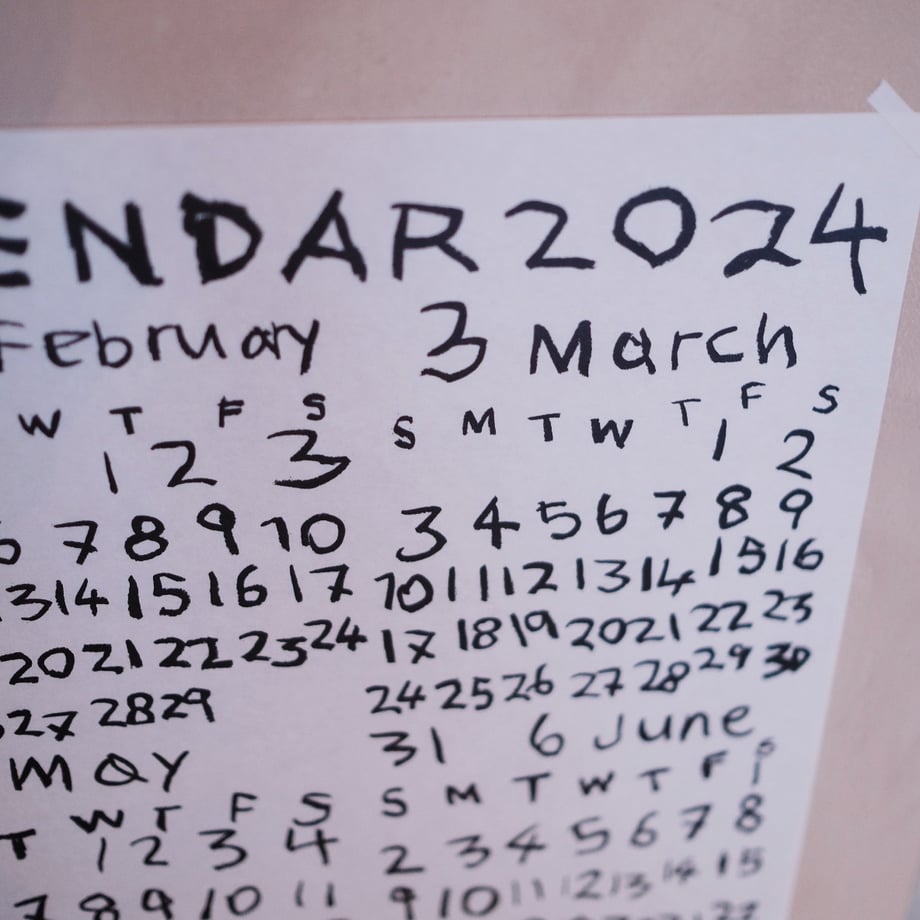 ENDAR 2024
February 3 March
W T F S S M T W T F S
1 2 3 1 2
6 7 8 9 10 3 4 5 6 7 8 9
13 14 15 16 17 10 11 12 13 14 15 16
20 21 22 23 24 17 18 19 20 21 22 23
27 28 29 24 25 26 27 28 29 30
May 31 6 June
T W T F S S M T W T F S
1
1 2 3 4 2 3 4 5 6 7 8
7 8 9 10 11 9 10 11 12 13 14 15